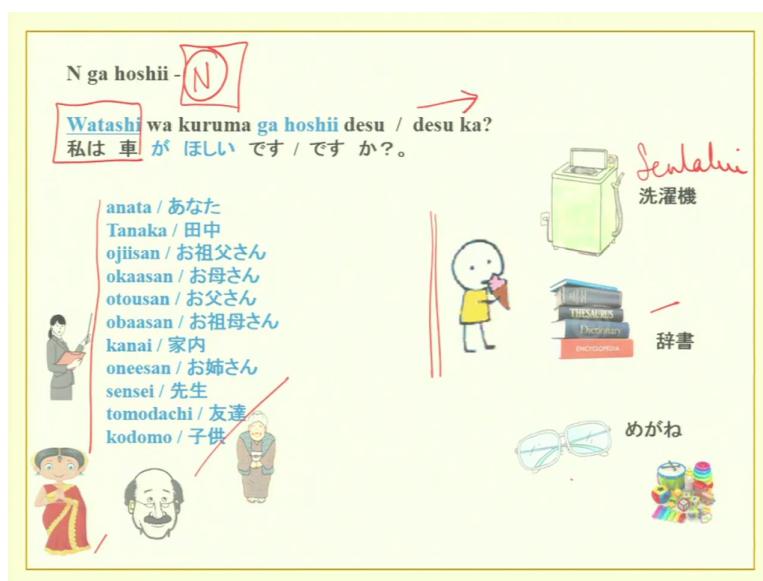 N ga hoshii - N
Watashi wa kuruma ga hoshii desu / desu ka?
私は 車 が ほしい です / です か？。
anata / あなた
Tanaka / 田中
ojiisan / お祖父さん
okaasan / お母さん
otousan / お父さん
obaasan / お祖母さん
kanai / 家内
oneesan / お姉さん
sensei / 先生
tomodachi / 友達
kodomo / 子供
洗濯機
THESAURUS
Dictionary
ENCYCLOPEDIA
辞書
めがね